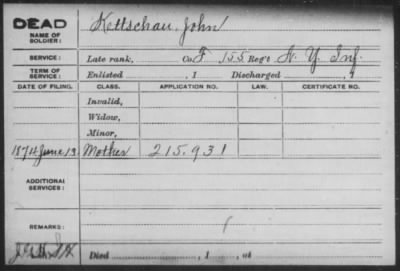 DEAD
NAME OF SOLDIER:
Kettschau, John
SERVICE:
Late rank, Co. F 155 Reg't N. Y. Inf.
TERM OF SERVICE:
Enlisted , 1 Discharged , 1
DATE OF FILING. CLASS. APPLICATION NO. LAW. CERTIFICATE NO.
Invalid,
Widow,
Minor,
1874 June 13. Mother 215.931
ADDITIONAL SERVICES:
REMARKS:
Died , 1 , at